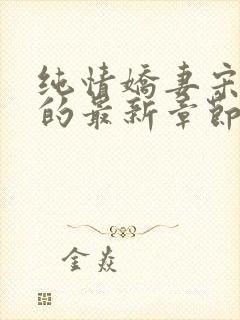 纯情嬌妻宋
的最新章節
金焱